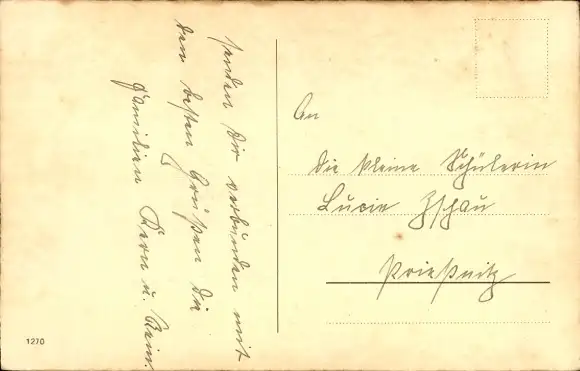 senden Dir verbunden mit
den besten Grüßen die
Familien Kern u.
An
die kleine Schülerin
Lucie Zschau
Prießnitz
1270